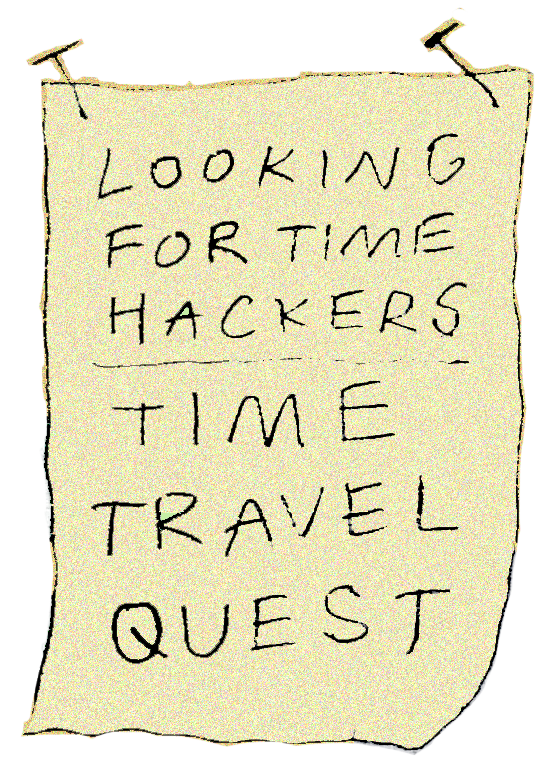 LOOKING
FOR TIME
HACKERS
TIME
TRAVEL
QUEST